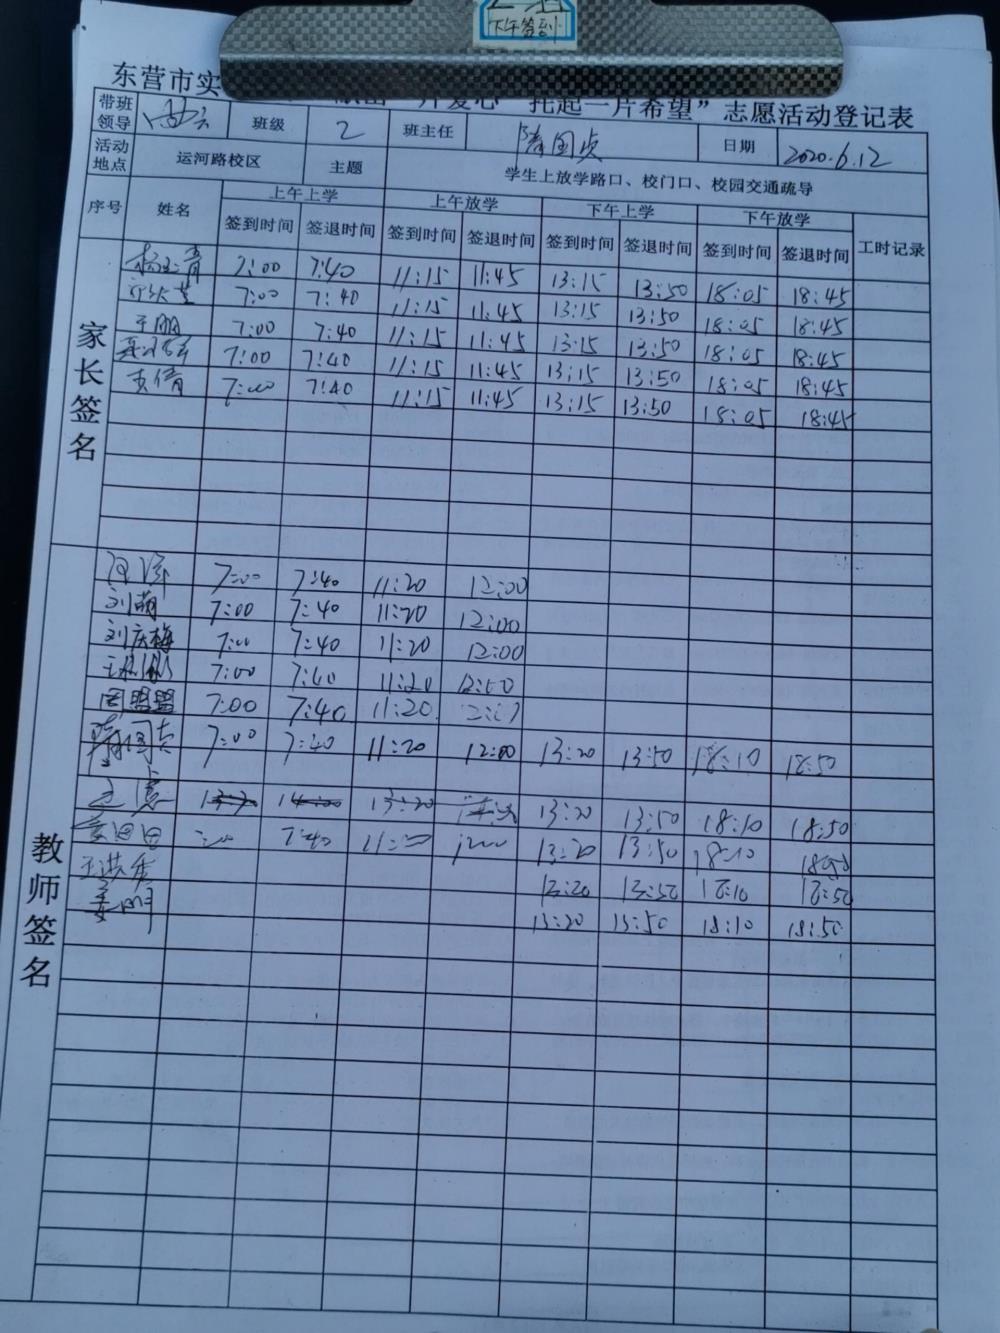 下午签到
东营市实
一片爱心 托起一片希望”志愿活动登记表
带班领导 班级 2 班主任 隋国贞 日期 2020.6.12
活动地点 运河路校区 主题 学生上放学路口、校门口、校园交通疏导
序号 姓名 上午上学 上午放学 下午上学 下午放学 工时记录
签到时间 签退时间 签到时间 签退时间 签到时间 签退时间 签到时间 签退时间
家长签名
7:00 7:40 11:15 11:45 13:15 13:50 18:05 18:45
7:00 7:40 11:15 11:45 13:15 13:50 18:05 18:45
于朋 7:00 7:40 11:15 11:45 13:15 13:50 18:05 18:45
7:00 7:40 11:15 11:45 13:15 13:50 18:05 18:45
7:00 7:40 11:15 11:45 13:15 13:50 18:05 18:45
教师签名
7:00 7:40 11:20 12:00
刘萌 7:00 7:40 11:20 12:00
刘庆梅 7:00 7:40 11:20 12:00
7:00 7:40 11:20 12:00
周盟盟 7:00 7:40 11:20
隋国贞 7:00 7:40 11:20 12:00 13:20 13:50 18:10 18:50
13:20 13:20 13:50 18:10 18:50
7:40 13:20 13:50 18:10 18:50
王洪秀 13:20 13:50 18:10 18:50
姜明 13:20 13:50 18:10 18:50